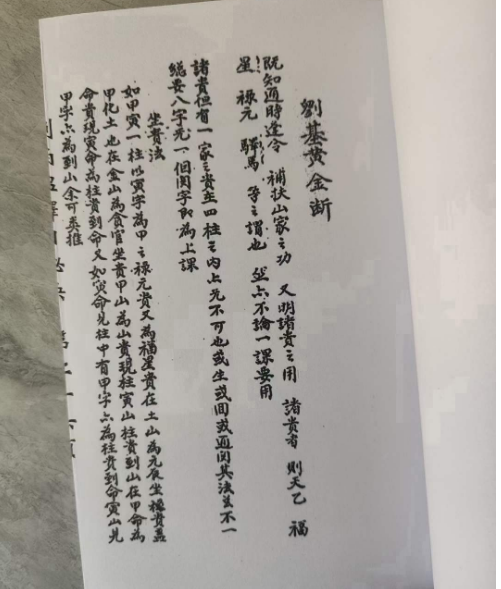 劉基黃金断
既知通時達令 補扶山家之功 又明諸貴之用 諸貴者 則天乙 福
星 祿元 驛馬 等之謂也 然亦不論一課要用
諸貴但有一家之貴在四柱之內占先不可也或生或間或通関其法並不一
総要八字无一個閑字即為上課
坐貴法
如甲寅一柱以寅字為甲之禄元貴又為福星貴在土山為元辰坐禄貴蓋
甲化土也在金山為貪官坐貴甲山為山貴現柱寅山柱貴到山在甲命為
命貴現寅命為柱貴到命又如寅命見柱中有甲字亦為柱貴到命寅山見
甲字亦為到山余可类推